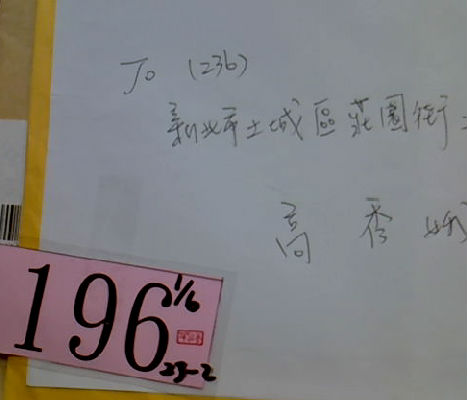 To (236)
新北市土城區莊園街
高 秀 娥
196 1/6
25-2